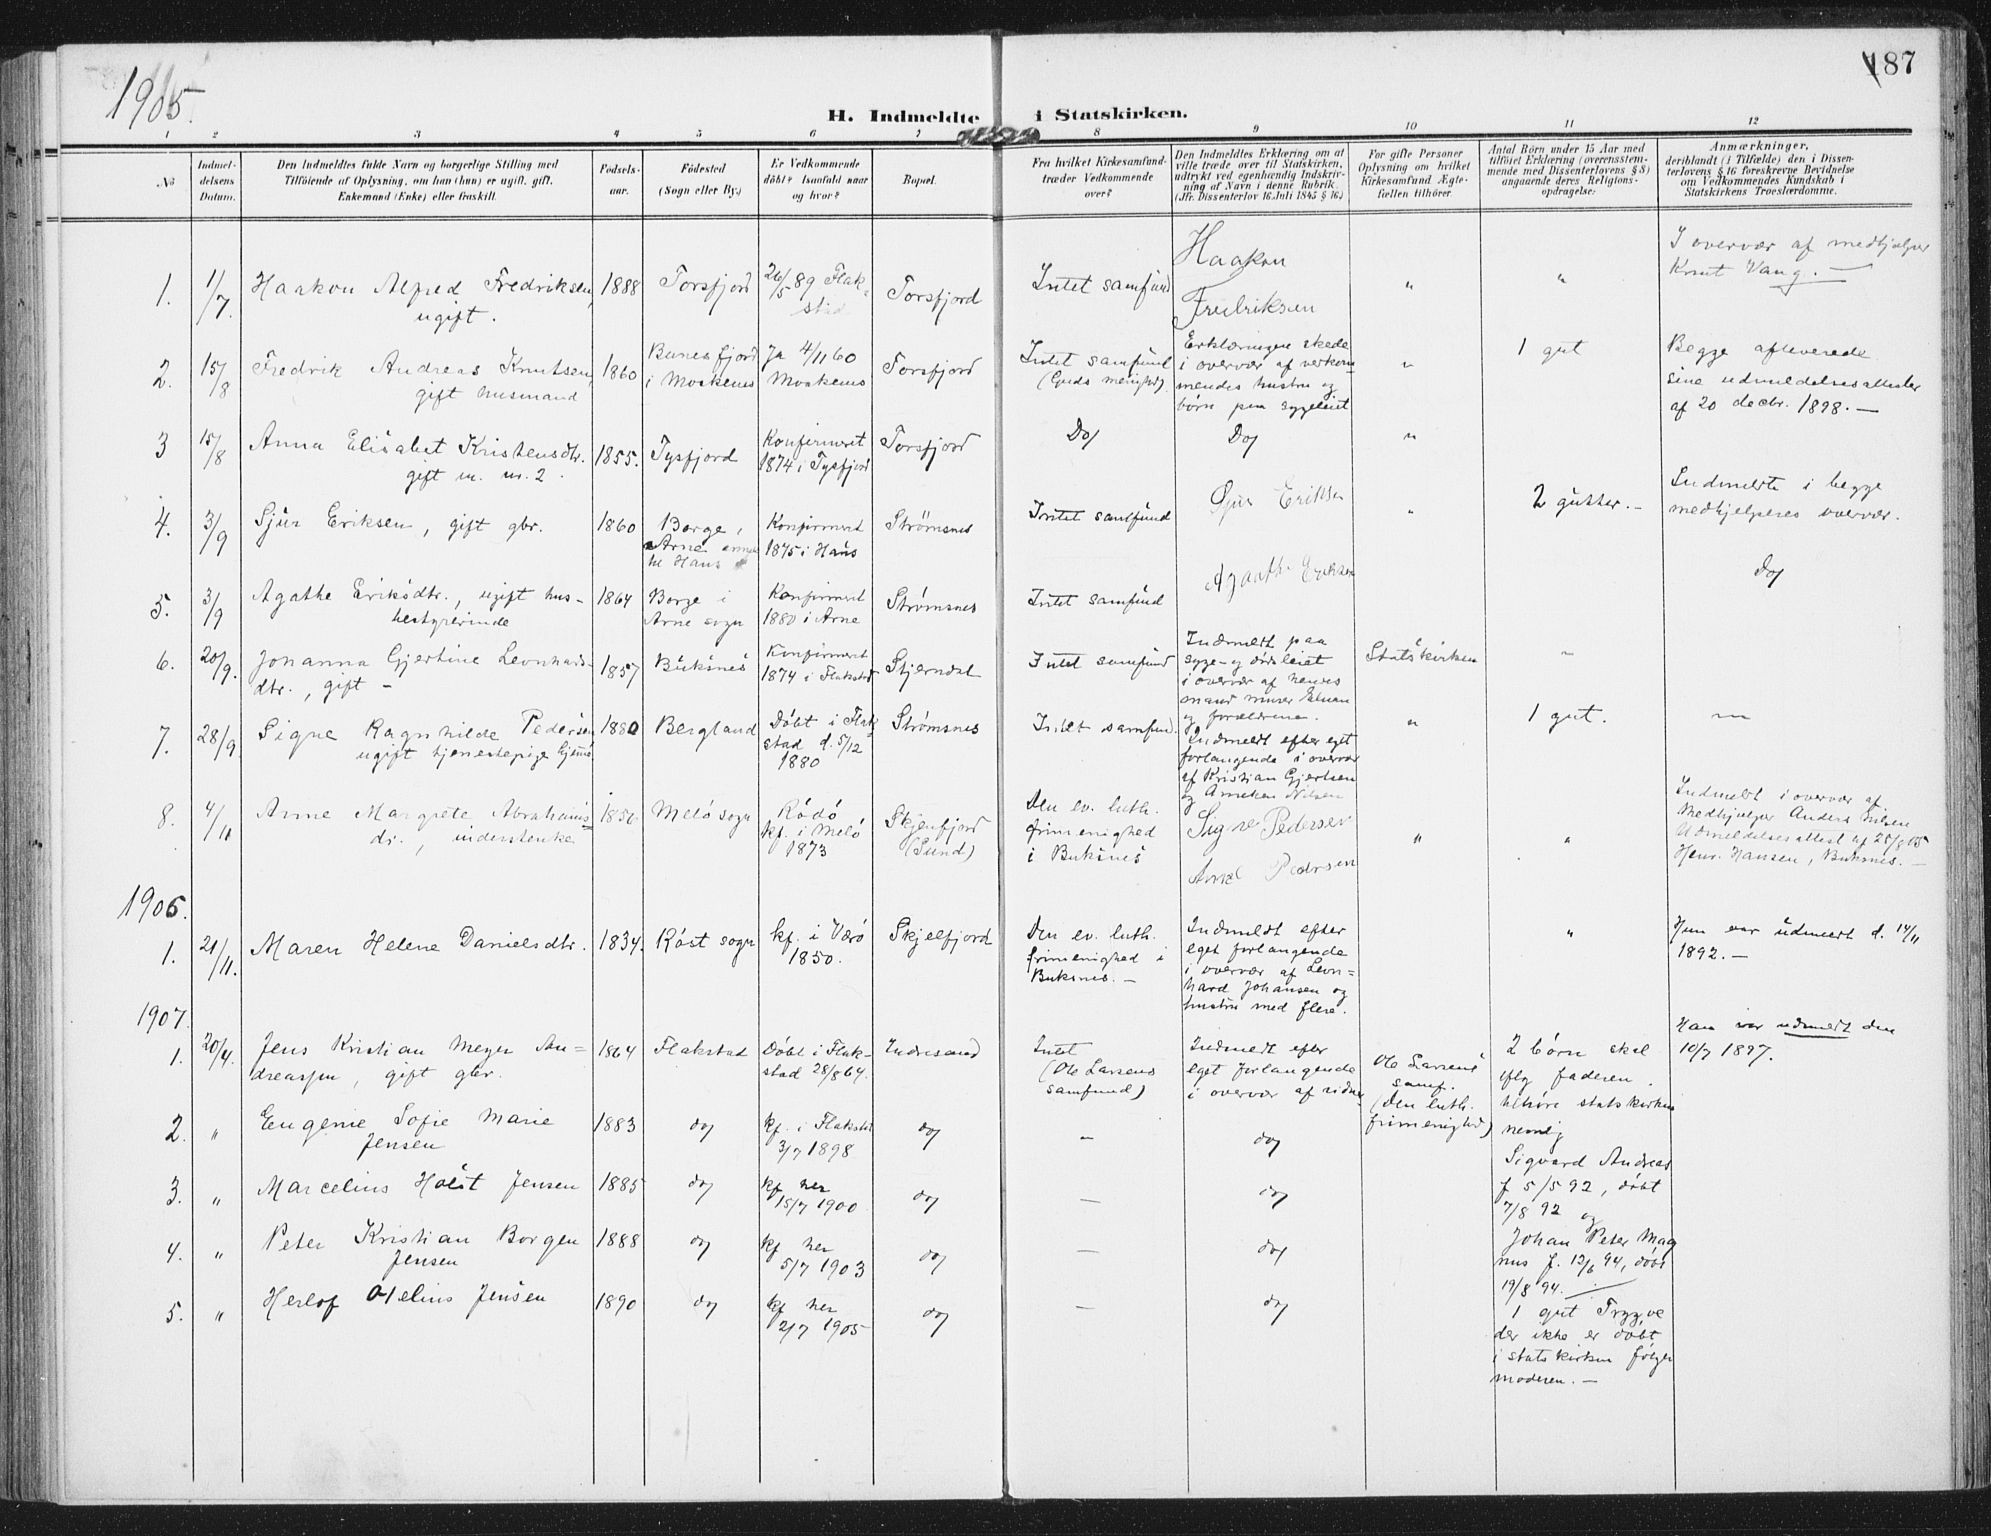 187
1905.
H. Indmeldte i Statskirken.
1 2 3 4 5 6 7 8 9 10 11 12
No
Indmel-
delsens
Datum.
Den Indmeldtes fulde Navn og borgerlige Stilling med
Tilföiende af Oplysning, om han (hun) er ugift, gift,
Enkemand (Enke) eller fraskilt.
Födsels-
aar.
Födested
(Sogn eller By.)
Er Vedkommende
döbt? Isaafald naar
og hvor?
Bopæl.
Fra hvilket Kirkesamfund-
træder Vedkommende
over?
Den Indmeldtes Erklæring om at
ville træde over til Statskirken,
udtrykt ved egenhændig Indskriv-
ning af Navn i denne Rubrik.
(Jfr. Dissenterlov 16 Juli 1845 § 16.)
For gifte Personer
Oplysning om hvilket
Kirkesamfund Ægte-
fællen tilhörer.
Antal Börn under 15 Aar med
tilföiet Erklæring (overensstem-
mende med Dissenterlovens § 8)
angaaende deres Religions-
opdragelse.
Anmærkninger,
deriblandt (i Tilfælde) den i Dissen-
terlovens § 16 foreskrevne Bevidnelse
om Vedkommendes Kundskab i
Statskirkens Troeslærdomme.
1.
1/7.
Haakon Alfred Fredriksen,
ugift.
1888
Torsfjord
26/5 89 Flak-
stad
Torsfjord
Intet samfund
Haakon
Fredriksen
"
"
I overvær af medhjælper
Knut Vang. —
2.
15/8
Fredrik Andreas Knutsen,
gift husmand
1860
Bunesfjord
i Moskenes
Ja 4/11 60
Moskenes
Torsfjord
Intet samfund
(Guds menighed)
Erklæringen skede
i overvær af vedkom-
mendes hustru og
børn paa sygeleiet
"
1 gut
Begge afleverede
sine udmeldelsesattester
af 20 decbr. 1898. —
3
15/8
Anna Elisabet Kristensdtr.
gift m. nr. 2.
1855.
Tysfjord
Konfirmeret
1874 i Tysfjord
Torsfjord
Do/
Do/
"
4.
3/9
Sjur Eriksen, gift gbr.
1860
Borge,
Arne
til Haus
Konfirmeret
1875 i Haus
Strømsnes
Intet samfund
Sjur Eriksen
"
2 gutter. —
Indmeldte i begge
medhjelperes overvær.
5.
3/9
Agathe Eriksdtr., ugift hus-
bestyrerinde
1864
Borge i
Arne sogn
Konfirmeret
1880 i Arne
Strømsnes
Intet samfund
Agaathe Eriksen
Do/
6.
20/9.
Johanna Gjertine Leonhards-
dtr., gift —
1857
Buksnes
Konfirmeret
1874 i Flakstad
Stjerndal
Intet samfund
Indmeldt paa
syge- og dødsleiet
i overvær af hendes
mand
og forældrene.
Statskirken
"
7.
28/9.
Signe Ragnhilde Pedersen
ugift tjenestepige
1880
Bergland
Døbt i Flak-
stad d. 5/12
1880
Strømsnes
Intet samfund.
Indmeldt efter eget
forlangende i overvær
af Kristian Gjertsen
og Nilsen
Signe Pedersen
"
1 gut.
"
8.
4/11
Anne Margrete Abrahams-
dr., understenke
1856.
Melö sogn
Rödö
kf. i Melö
1873
Skjenfjord
(Sund)
Den ev. luth.
frimenighed
i Buksnes
Anne Pedersen
"
"
Indmeldt i overvær af
Medhjælper Anders Nilsen
Udmeldelsesattest af 25/8 05
Henr. Hansen, Buksnes. —
1906.
1.
21/11.
Maren Helene Danielsdtr.
1834.
Röst sogn
kf. i Værö
1850.
Skjelfjord
Den ev. luth.
frimenighed i
Buksnes. —
Indmeldt efter
eget forlangende
i overvær af Leon-
hard Johansen og
hustru med flere.
"
Hun var udmeldt d. 14/11
1892. —
1907.
1.
20/4.
Jens Kristian Meyer An-
dreassen, gift gbr.
1864
Flakstad
Döbt i Flak-
stad 28/8 64.
Indresand
Intet
(Ole Larsens
samfund)
Indmeldt efter
eget forlangende
i overvær af vidner
Ole Larsens
samf.
(den luth.
frimenighed)
2 børn skal
iflg faderen
tilhøre statskirken
nemlig
Sigvard Andreas
f. 5/5 92, døbt
7/8 92 og
Johan Peter Mag
nus f. 12/6 94, døbt
19/8 94. —
1 gut Trygve
der ikke er døbt
i statskirken følger
moderen. —
Han var udmeldt den
10/7 1897.
2.
"
Eugenie Sofie Marie
Jensen
1883
do/
kf. i Flakstad
3/7 1898
do/
—
do/
3.
"
Marcelius Holst Jensen
1885
do/
kf her
15/7 1900
do/
—
do/
4.
"
Peter Kristian Borgen
Jensen
1888
do/
kf her
5/7 1903
do/
—
do/
5.
"
Herlof Jensen
1890
do/
kf her
2/7 1905
do/
—
do/